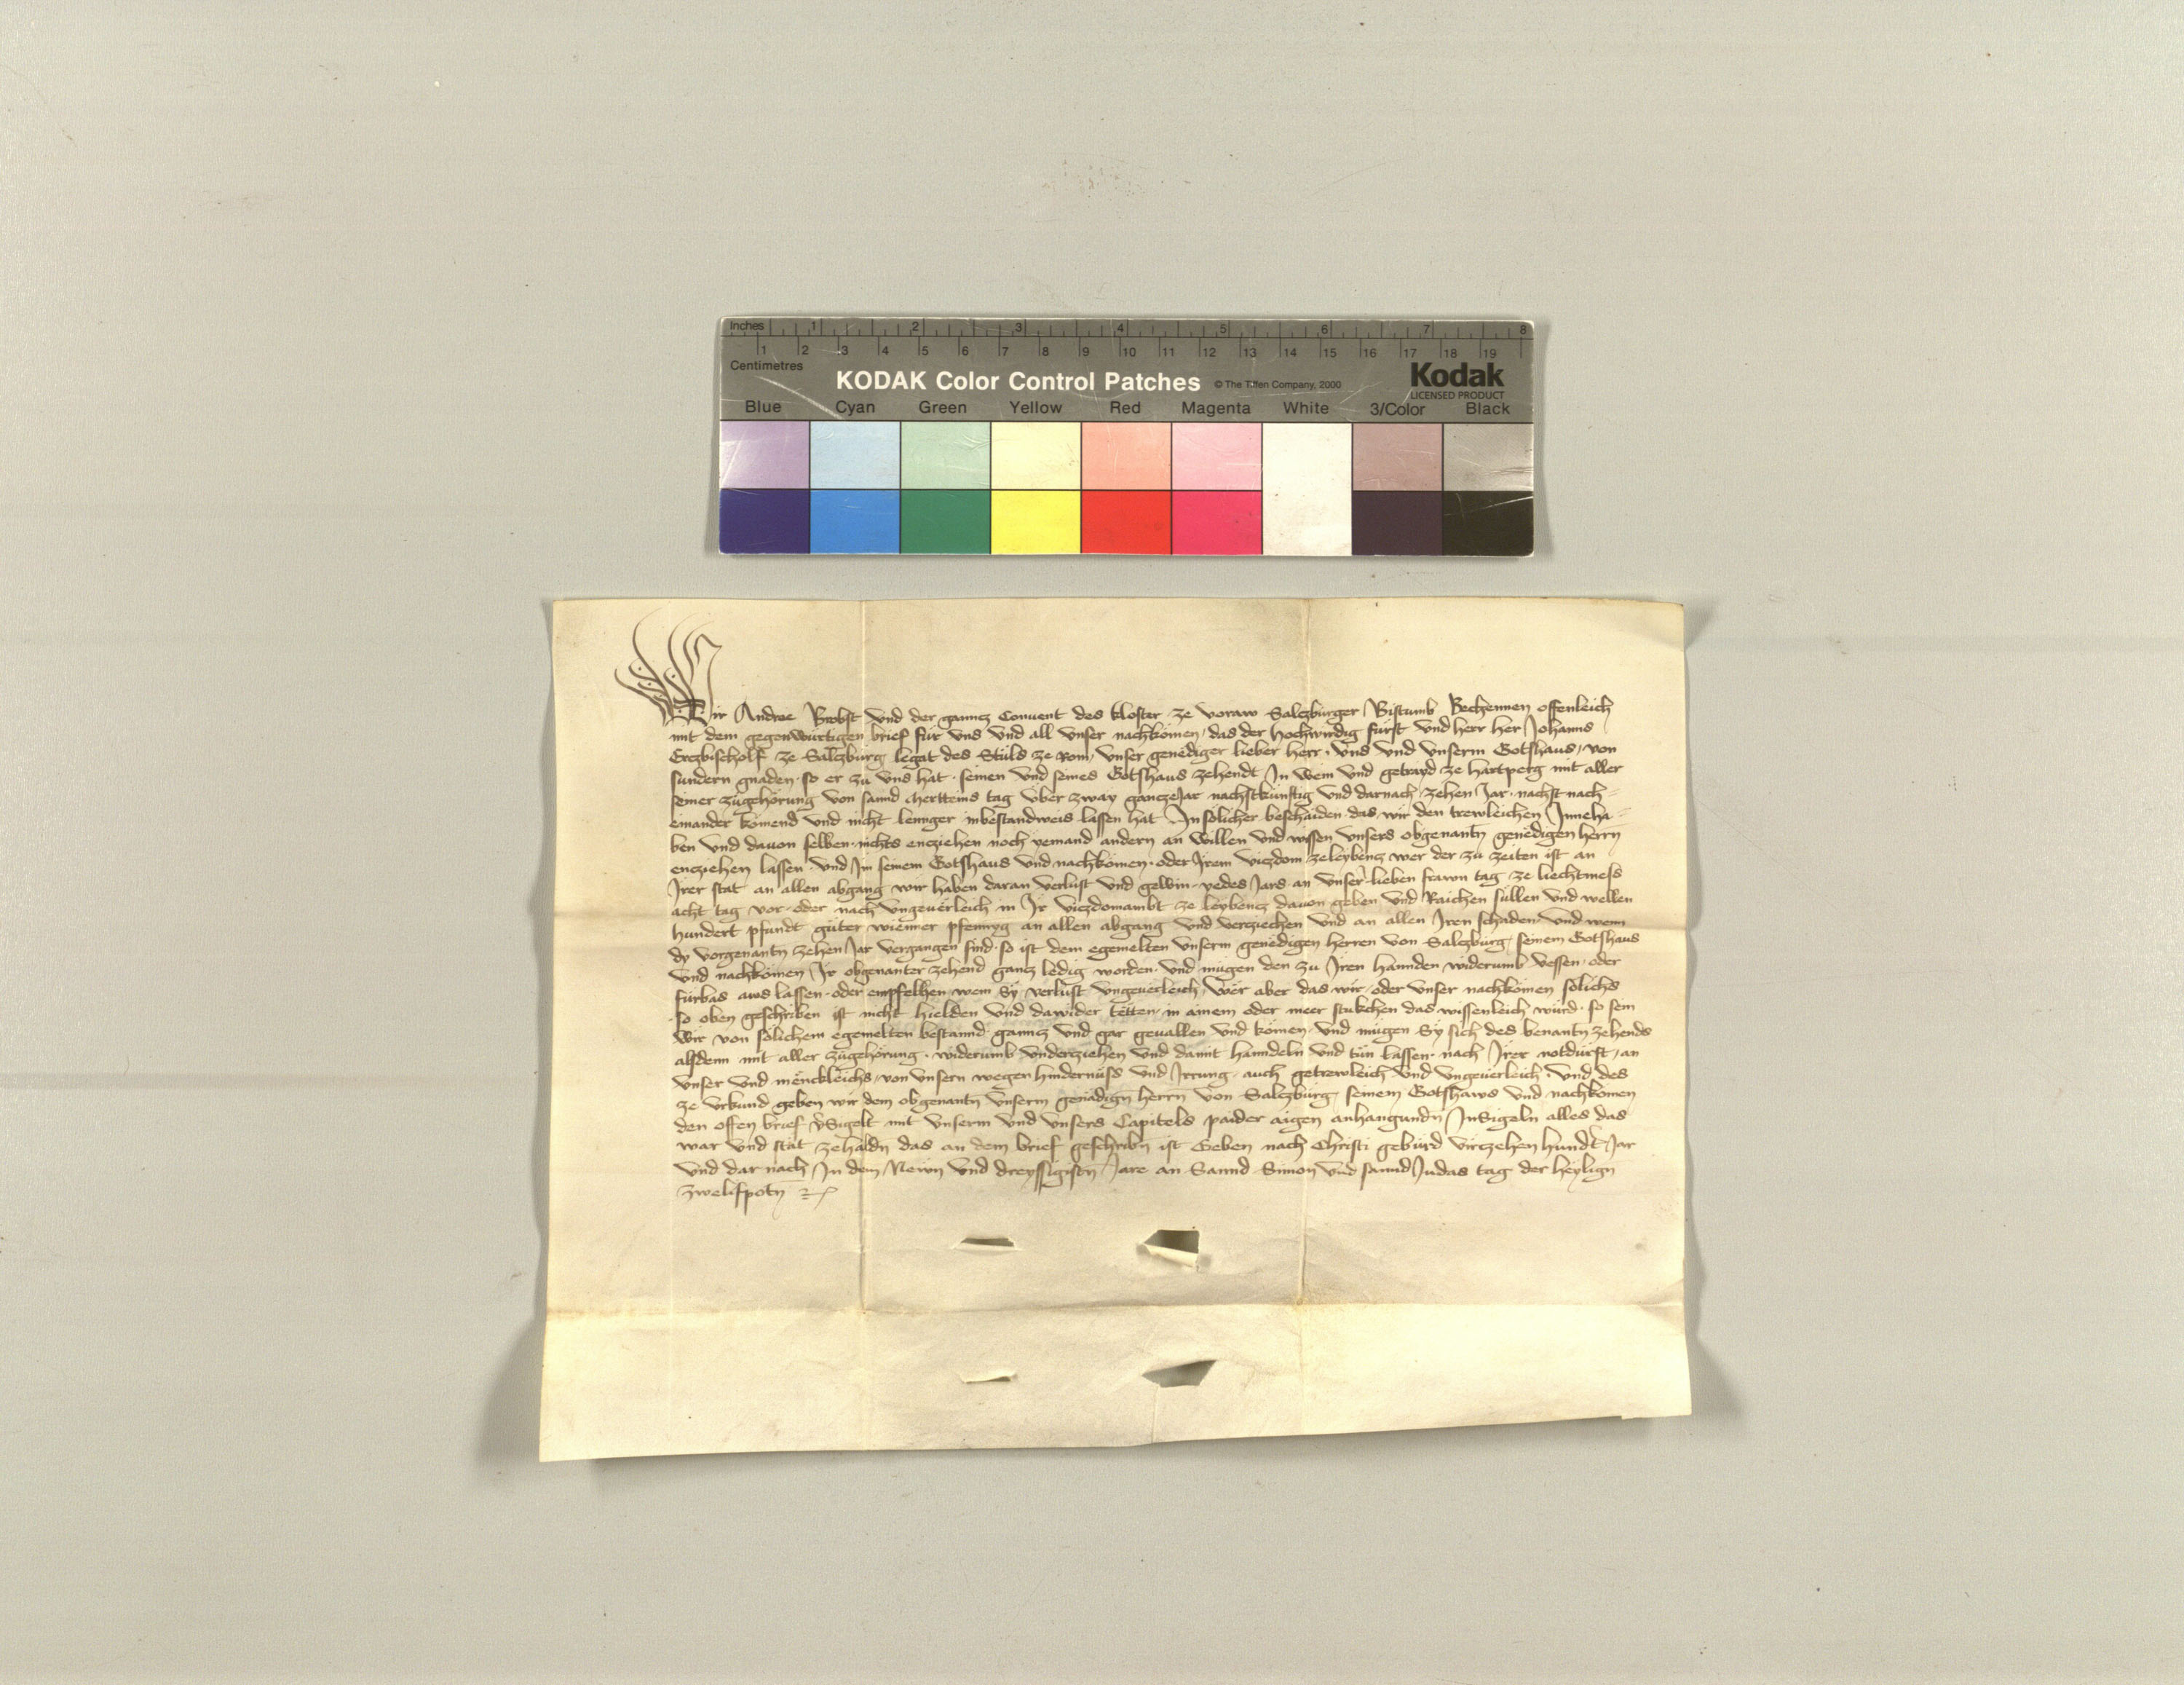 Inches 1 2 3 4 5 6 7 8
1 2 3 4 5 6 7 8 9 10 11 12 13 14 15 16 17 18 19
Centimetres
KODAK Color Control Patches © The Tiffen Company, 2000 Kodak
LICENSED PRODUCT
Blue Cyan Green Yellow Red Magenta White 3/Color Black
Wir Andree Brobst und der ganncz Conuent des kloster ze voraw Salczburger Bistumb Bechennen offenleich
mit dem gegenwürtigen brief für vns vnd all vnser nachkömen, das der hochwirdig fürst vnd herr her Johanns
Erczbischolf ze Salczburg legat des Stuls ze Rom, vnser genediger lieber herr, vns vnd vnserm Gotshaus, von
sundern gnaden so er zu vns hat seinen vnd seines Gotshaus zehendt In wein vnd getrayd ze hartperg mit aller
seiner zugehörung von sannd Mertteins tag über zway gancze Jar nachstkünftig vnd darnach zehen Jar nachst nach-
einander komend vnd nicht lennger inbestandweis lassen hat In sölicher beschaiden das wir den trewleichen Inneha-
ben vnd dauon selben nichts encziehen noch yemand andern an willen vnd wissen vnsers obgenantn genedigen herrn
encziehen lassen vnd Im seinem Gotshaus vnd nachkömen oder Irem viczdom zeleybencz wer der zu zeiten ist an
Irer stat an allen abgang wir haben daran verlust vnd gewin yedes Jars an vnser lieben frawn tag ze liechtmess
acht tag vor oder nach vngeuerleich in Ir viczdomambt ze leybencz dauon geben vnd Raichen sullen vnd wellen
hundert pfundt guter wienner pfennyg an allen abgang vnd verziechen vnd an allen Iren schaden vnd wenn
dy vorgenantn zehen Jar vergangen sind so ist dem egemelten vnserm genedigen herren von Salczburg seinem Gotshaus
vnd nachkömen Ir obgenanter zehend gancz ledig worden vnd mügen den zu Iren hannden widerumb vessen oder
fürbas aus lassen oder empfelhen wem Sy verlust vngeuerleich, wer aber das wir oder vnser nachkömen sölichs
so oben geschriben ist nicht hielden vnd dawider tetten in ainem oder meer stukchen das wissenleich würd so sein
wir von sölichem egemelten bestannd gancz vnd gar geuallen vnd komen vnd mügen Sy sich des benantn zehends
alsdenn mit aller zugehörung widerumb vnderziehen vnd damit hanndeln vnd tun lassen nach Irer notdurft, an
vnser vnd menckleichs von vnsern wegen hindernüss vnd Irrung auch getrewleich vnd vngeuerleich vnd des
ze vrkund geben wir dem obgenantn vnserm genädign herrn von Salczburg seinem Gotshaws vnd nachkomen
den offen brief vsigelt mit vnserm vnd vnsers Capitels paider aigen anhangundn InSigeln alles das
war vnd stät zehaldn das an dem brief geschribn ist Geben nach Christi gebürd vierczehen hundt Jar
vnd dar nach In dem Newn vnd dreyssigistn Jare an Sannd Simon vnd sannd Judas tag der heylign
zwelifpotn